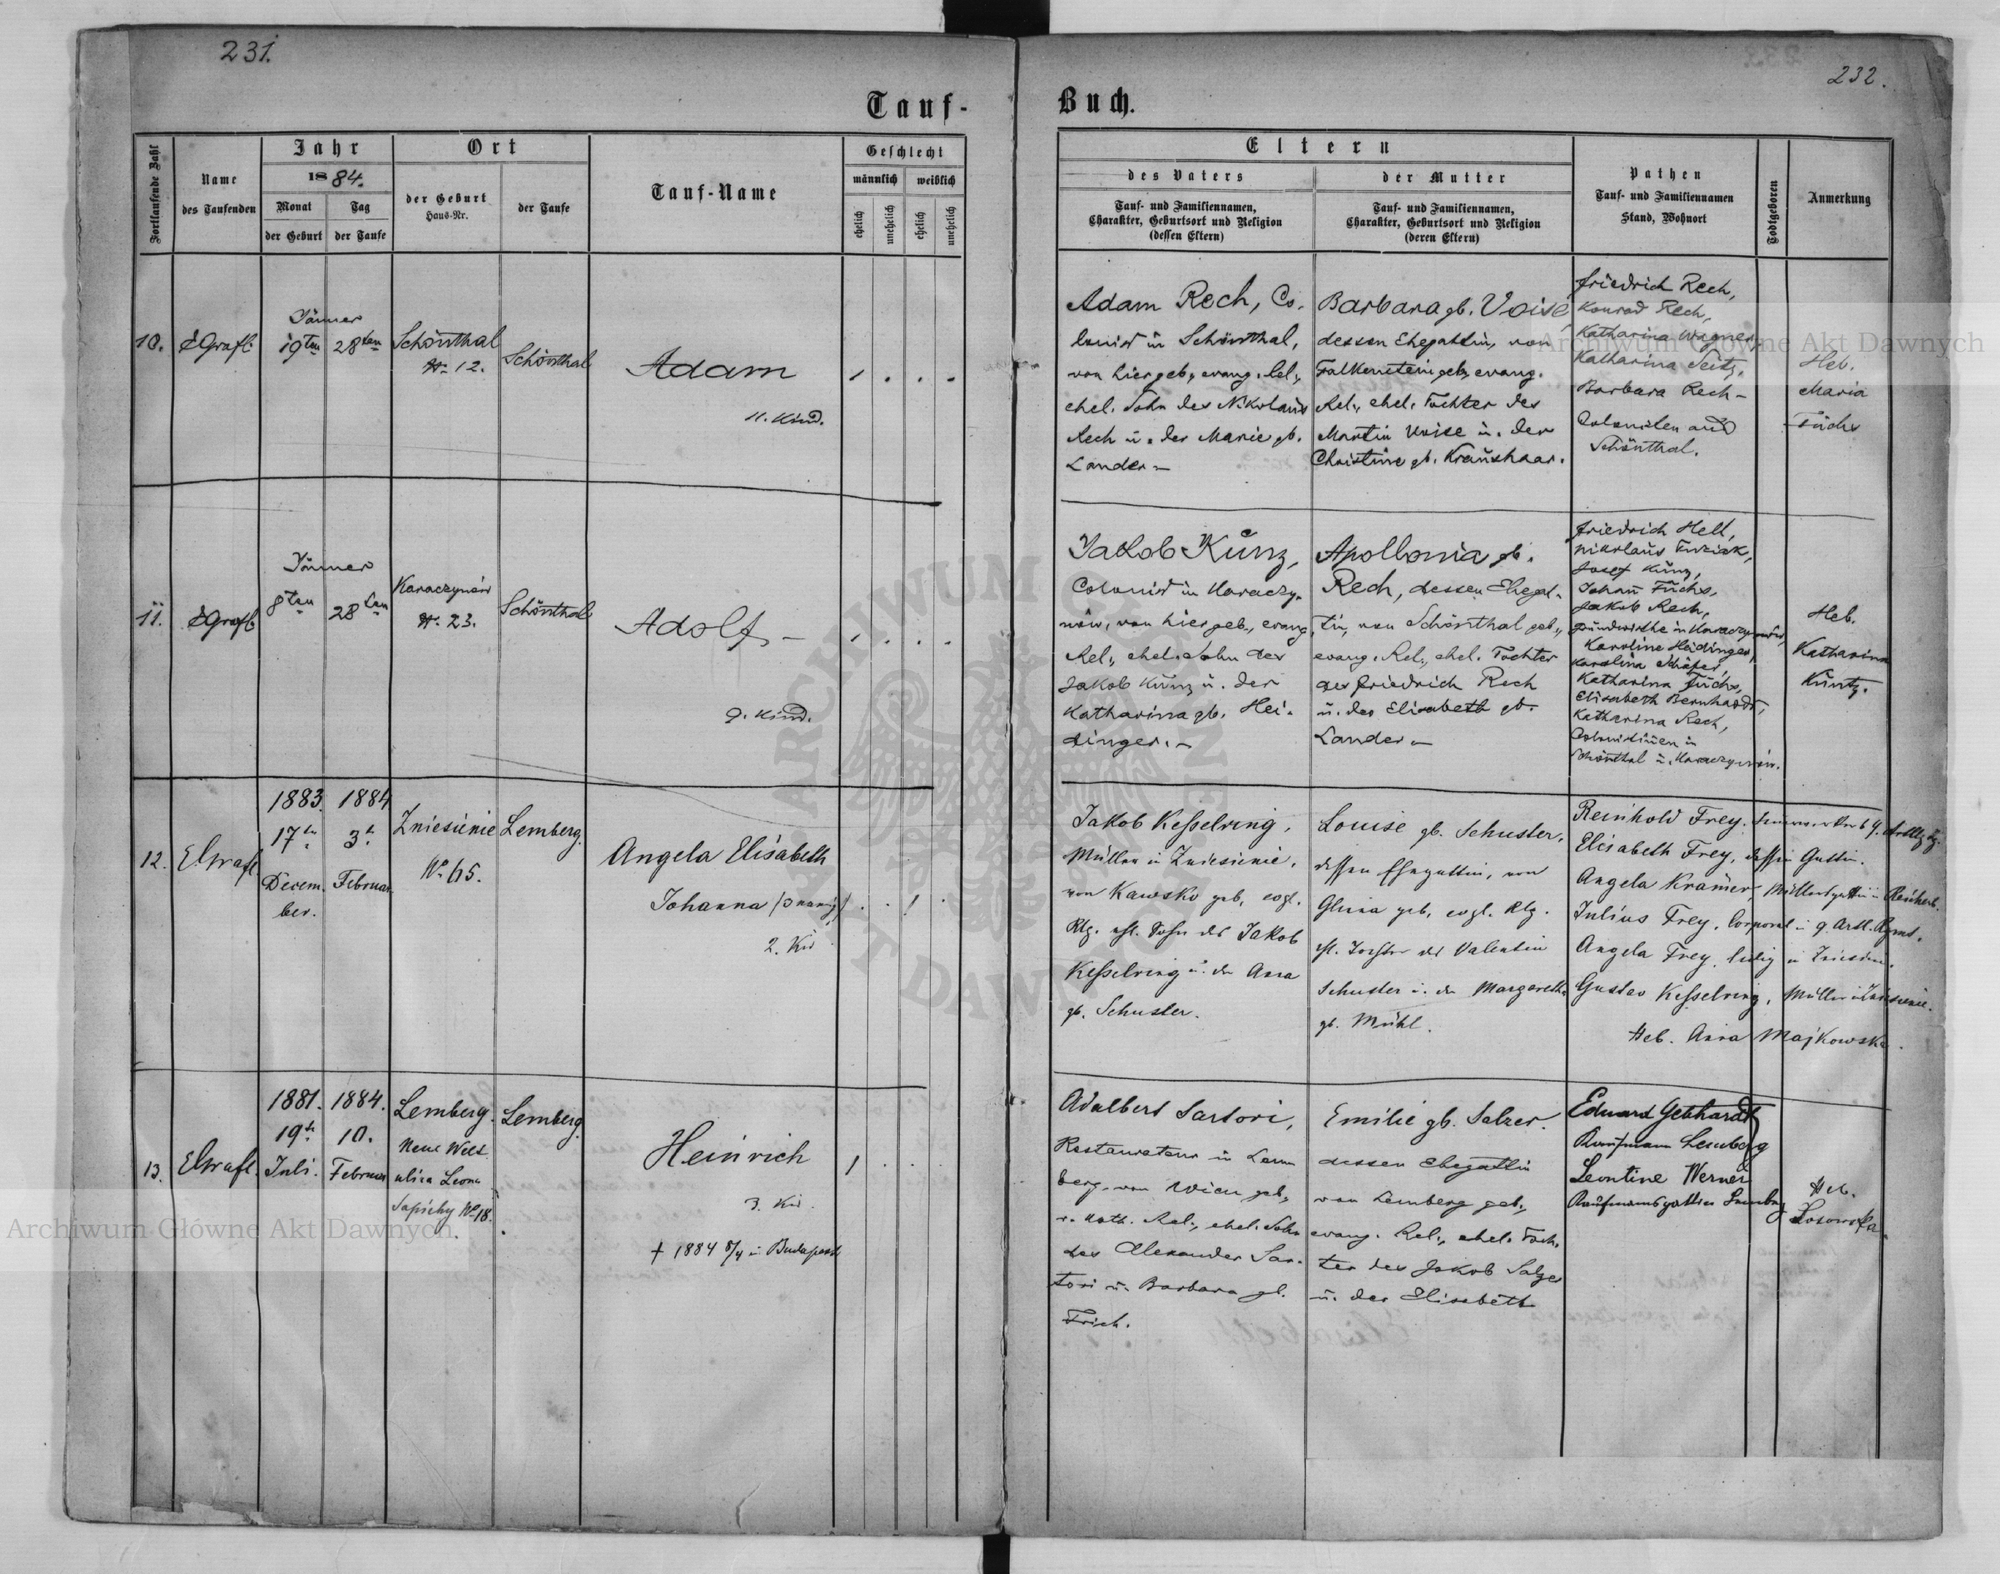 231.
232.
Tauf-
Buch.
Fortlaufende Zahl
Name
des Taufenden
Jahr
1884.
Monat
der Geburt
Tag
der Taufe
Ort
der Geburt
Haus-Nr.
der Taufe
Tauf-Name
Geschlecht
männlich
weiblich
ehelich
unehelich
ehelich
unehelich
Eltern
des Vaters
Tauf- und Familiennamen,
Charakter, Geburtsort und Religion
(dessen Eltern)
der Mutter
Tauf- und Familiennamen,
Charakter, Geburtsort und Religion
(deren Eltern)
Pathen
Tauf- und Familiennamen
Stand, Wohnort
Todtgeboren
Anmerkung
10.
EGrafl
Jänner
19ten
28ten
Schönthal
Nr. 12.
Schönthal
Adam
11. Kind.
1
Adam Rech, Co-
lonist in Schönthal,
von hier geb., evang. Rel.,
ehel. Sohn des Nikolaus
Rech u. der Marie gb.
Lander
Barbara gb. Voise,
dessen Ehegattin, von
Falkenstein geb., evang.
Rel., ehel. Tochter des
Martin Voise u. der
Christine gb. Kraushaar.
Friedrich Rech,
Konrad Rech,
Katharina Wagner,
Katharina Seitz,
Barbara Rech
Colonisten aus
Schönthal.
Heb.
Maria
Fuchs
11.
EGrafl
Jänner
8ten
28ten
Karaczynów
Nr. 23.
Schönthal
Adolf
9. Kind.
1
Jakob Kunz,
Colonist in Karaczy-
nów, von hier geb., evang.
Rel., ehel. Sohn des
Jakob Kunz u. der
Katharina gb. Hei-
dinger.
Apollonia gb.
Rech, dessen Ehegat-
tin, von Schönthal geb.,
evang. Rel., ehel. Tochter
des Friedrich Rech
u. der Elisabeth gb.
Lander
Friedrich Hell,
Nikolaus
Josef Kunz,
Johann Fuchs,
Jakob Rech,
Grundwirthe in Karaczynów,
Karoline Heidinger,
Karolina Schäfer,
Katharina Fuchs,
Elisabeth Bernhardt,
Katharina Rech,
Colonistinen in
Schönthal u. Karaczynów.
Heb.
Katharina
Kuntz.
12.
EGrafl
1883.
17t.
Decem-
ber.
1884
3t.
Februar
Zniesienie
No 65.
Lemberg.
Angela Elisabeth
Johanna
2. Kd
1
Jakob Kesselring,
Müller in Zniesienie,
von Kawsko geb, evgl.
Rlg. ehl. Sohn des Jakob
Kesselring u. der Anna
gb. Schuster.
Louise gb. Schuster,
dessen Ehegattin, von
geb, evgl. Rlg.
ehl. Tochter des Valentin
Schuster u. der Margaretha
gb. Mühl.
Reinhold Frey,
Elisabeth Frey, dessen Gattin.
Angela Kramer, Müllersgattin in
Julius Frey, Corporal in 9. Artl. Rgmt.
Angela Frey, ledig in Zniesien.
Gustav Kesselring, Müller in Zniesienie.
Heb. Anna Majkowska.
13.
EGrafl.
1881.
19t.
Juli.
1884.
10.
Februar
Lemberg.
Neue Welt
ulica Leona
Sapiehy No 18.
Lemberg.
Heinrich
3. Kd.
† 1884 8/4 in Budapest
1
Adalbert Sartori,
Restaurateur in Lem-
berg, von Wien geb.,
r. kath. Rel., ehel. Sohn
des Alexander Sar-
tori u. Barbara gb.
Frich.
Emilie gb. Salzer.
dessen Ehegattin
von Lemberg geb.,
evang. Rel., ehel. Toch-
ter des Jakob Salzer
u. der Elisabeth
Eduard Gebhardt
Kaufmann Lemberg
Leontine Werner
Kaufmannsgattin Lemberg
Heb.
Losowska
Archiwum Główne Akt Dawnych
Archiwum Główne Akt Dawnych
ARCHIWUM GŁÓWNE AKT DAWNYCH